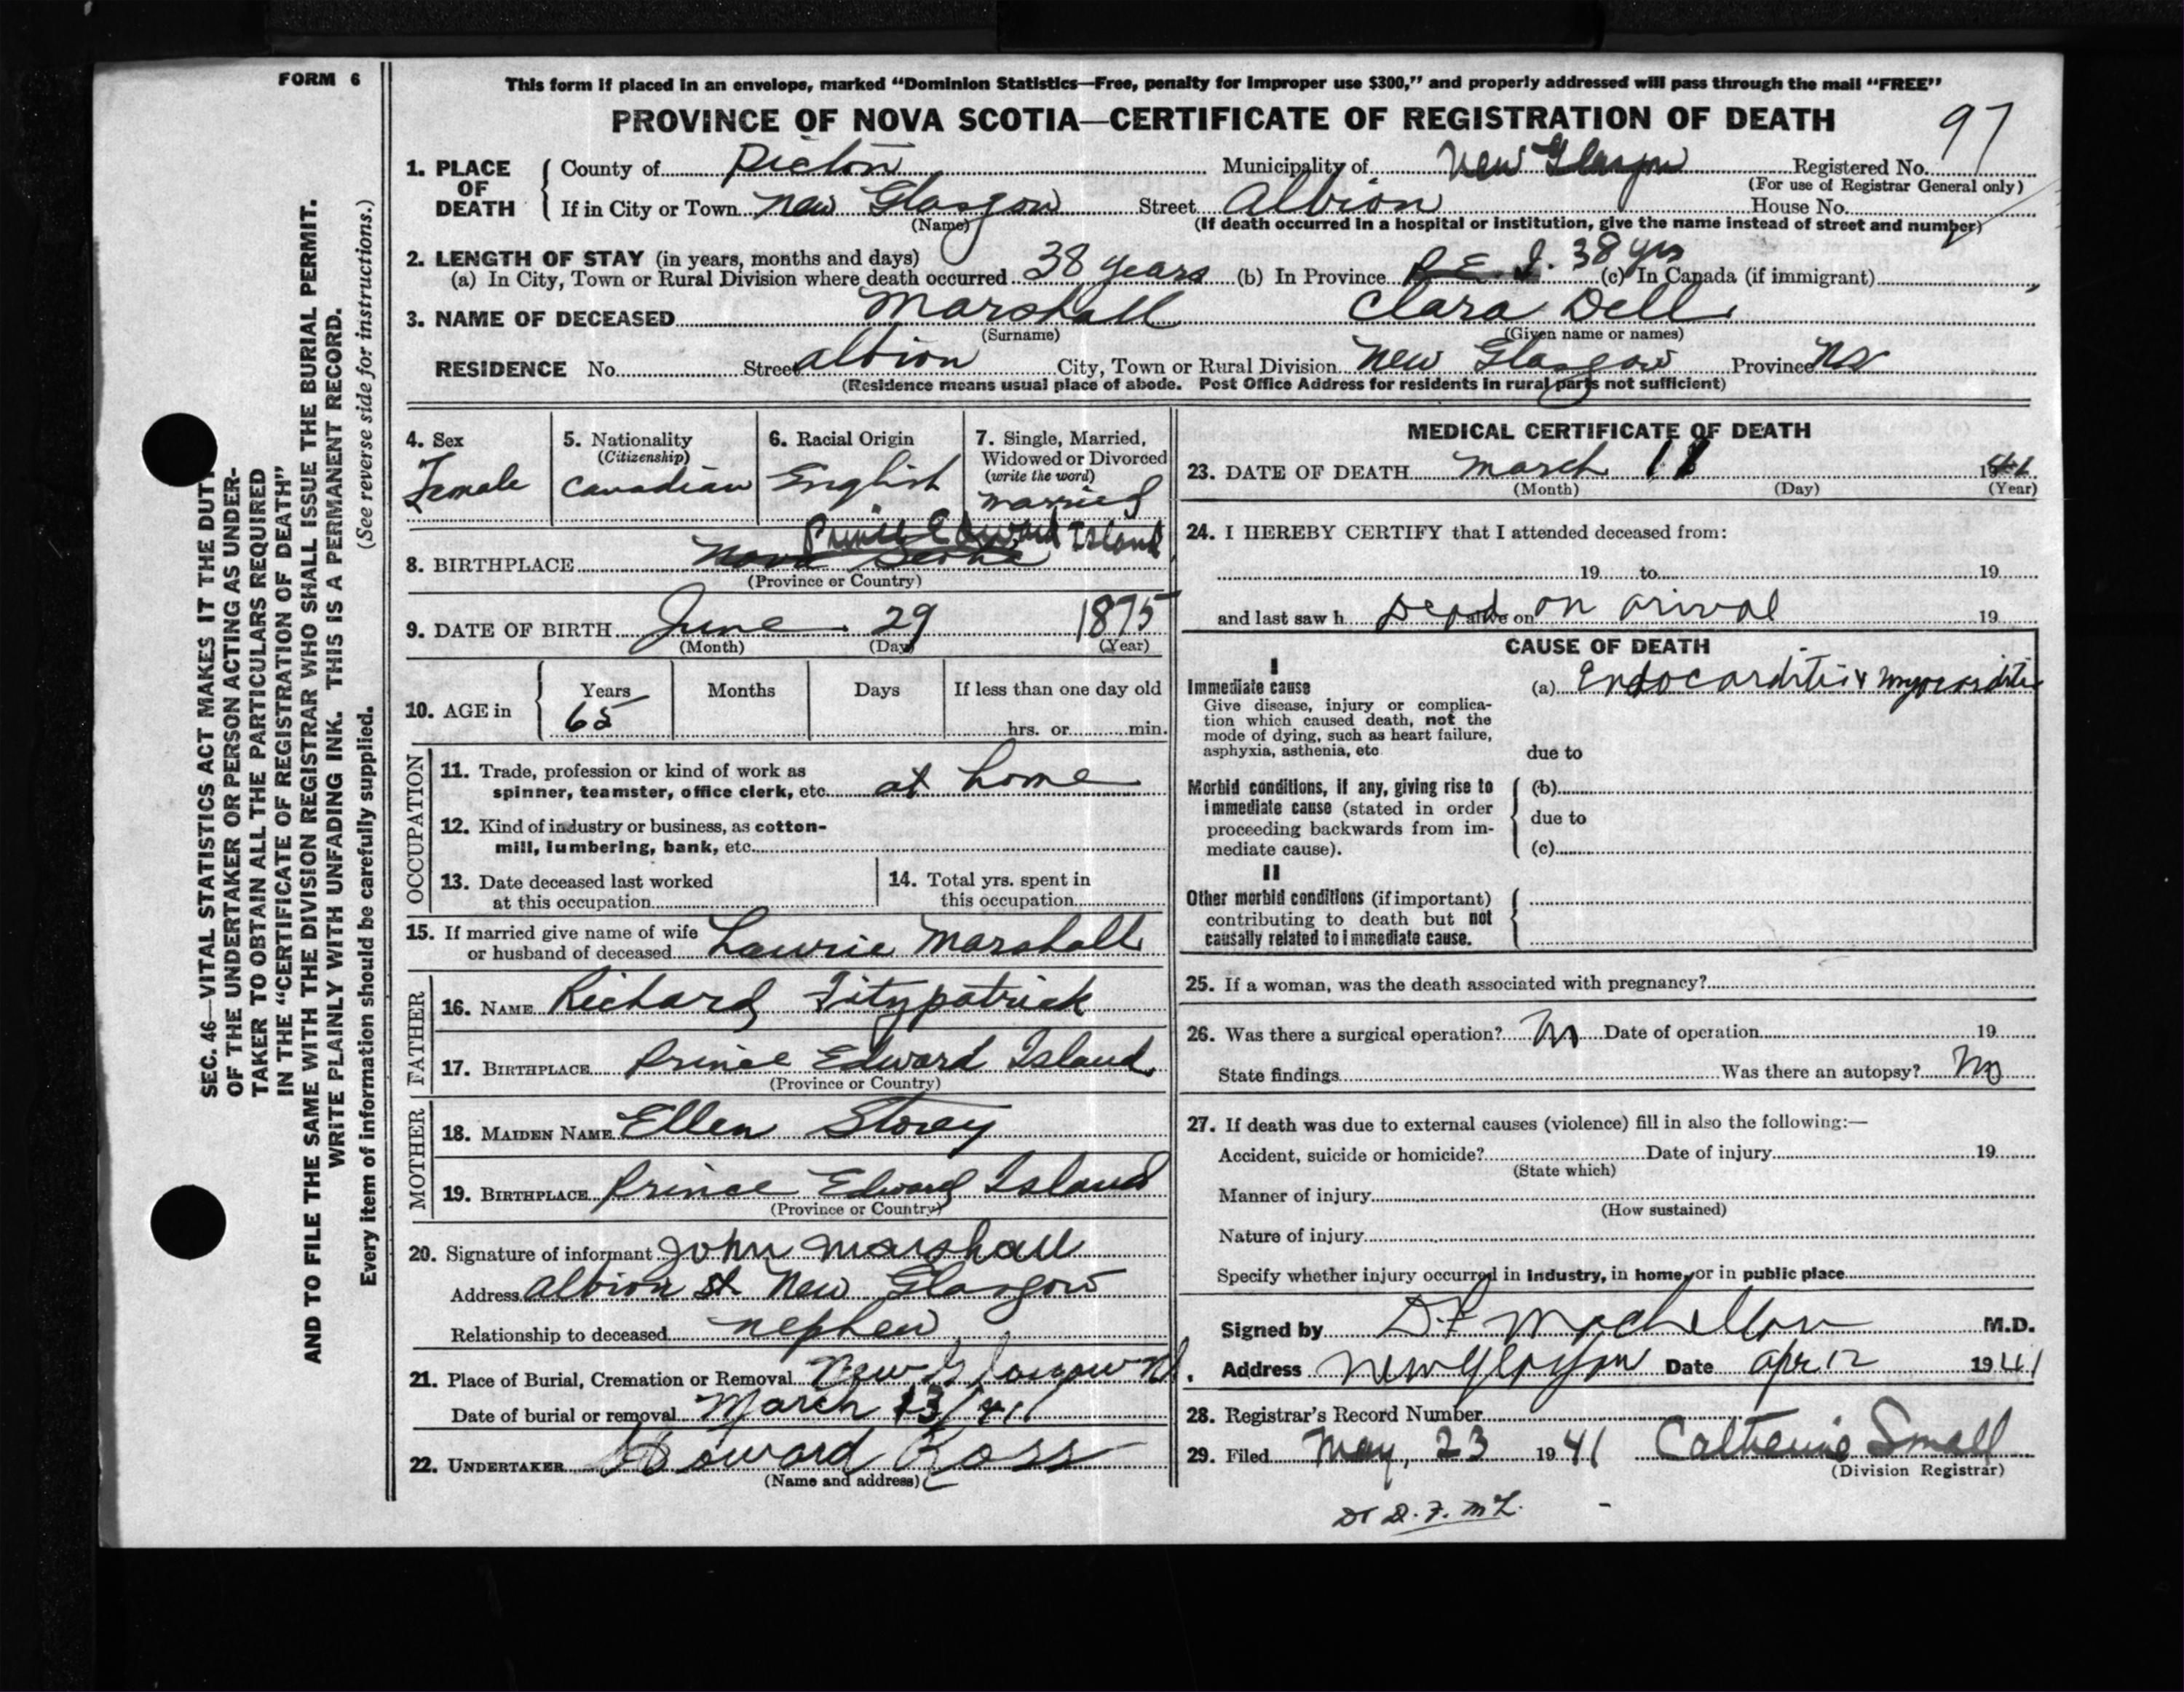 FORM 6
This form if placed in an envelope, marked “Dominion Statistics—Free, penalty for improper use $300,” and properly addressed will pass through the mail “FREE”
PROVINCE OF NOVA SCOTIA—CERTIFICATE OF REGISTRATION OF DEATH
97
1. PLACE OF DEATH
County of Pictou Municipality of New Glasgow Registered No.
(For use of Registrar General only)
If in City or Town New Glasgow Street Albion House No.
(Name) (If death occurred in a hospital or institution, give the name instead of street and number)
2. LENGTH OF STAY (in years, months and days)
(a) In City, Town or Rural Division where death occurred 38 years (b) In Province P.E.I. 38 yrs (c) In Canada (if immigrant)
3. NAME OF DECEASED Marshall Clara Dell
(Surname) (Given name or names)
RESIDENCE No. Street Albion City, Town or Rural Division New Glasgow Province NS
(Residence means usual place of abode. Post Office Address for residents in rural parts not sufficient)
4. Sex
Female
5. Nationality
(Citizenship)
Canadian
6. Racial Origin
English
7. Single, Married,
Widowed or Divorced
(write the word)
married
Prince Edward Island
8. BIRTHPLACE Nova Scotia
(Province or Country)
9. DATE OF BIRTH June 29 1875
(Month) (Day) (Year)
10. AGE in
Years Months Days If less than one day old
65
hrs. or min.
OCCUPATION
11. Trade, profession or kind of work as
spinner, teamster, office clerk, etc. at home
12. Kind of industry or business, as cotton-
mill, lumbering, bank, etc.
13. Date deceased last worked
at this occupation
14. Total yrs. spent in
this occupation
15. If married give name of wife
or husband of deceased Laurie Marshall
FATHER
16. NAME Richard Fitzpatrick
17. BIRTHPLACE Prince Edward Island
(Province or Country)
MOTHER
18. MAIDEN NAME Ellen Storey
19. BIRTHPLACE Prince Edward Island
(Province or Country)
20. Signature of informant John Marshall
Address Albion St New Glasgow
Relationship to deceased nephew
21. Place of Burial, Cremation or Removal New Glasgow
Date of burial or removal March 13/41
22. UNDERTAKER Howard Ross
(Name and address)
MEDICAL CERTIFICATE OF DEATH
23. DATE OF DEATH March 11 1941
(Month) (Day) (Year)
24. I HEREBY CERTIFY that I attended deceased from:
19 to 19
and last saw h Dead alive on on arival 19
CAUSE OF DEATH
I
Immediate cause
Give disease, injury or complica-
tion which caused death, not the
mode of dying, such as heart failure,
asphyxia, asthenia, etc
(a) Endocarditis & myocarditis
due to
Morbid conditions, if any, giving rise to
immediate cause (stated in order
proceeding backwards from im-
mediate cause).
(b)
due to
(c)
II
Other morbid conditions (if important)
contributing to death but not
causally related to immediate cause.
25. If a woman, was the death associated with pregnancy?
26. Was there a surgical operation? No Date of operation 19
State findings Was there an autopsy? No
27. If death was due to external causes (violence) fill in also the following:—
Accident, suicide or homicide? Date of injury 19
(State which)
Manner of injury
(How sustained)
Nature of injury
Specify whether injury occurred in industry, in home, or in public place
Signed by D F MacLellan M.D.
Address New Glasgow Date Apr 12 1941
28. Registrar's Record Number
29. Filed May, 23 1941 Catherine Small
(Division Registrar)
Dr D. F. McL.
SEC. 46—VITAL STATISTICS ACT MAKES IT THE DUTY
OF THE UNDERTAKER OR PERSON ACTING AS UNDER-
TAKER TO OBTAIN ALL THE PARTICULARS REQUIRED
IN THE “CERTIFICATE OF REGISTRATION OF DEATH”
AND TO FILE THE SAME WITH THE DIVISION REGISTRAR WHO SHALL ISSUE THE BURIAL PERMIT.
WRITE PLAINLY WITH UNFADING INK. THIS IS A PERMANENT RECORD.
Every item of information should be carefully supplied. (See reverse side for instructions.)